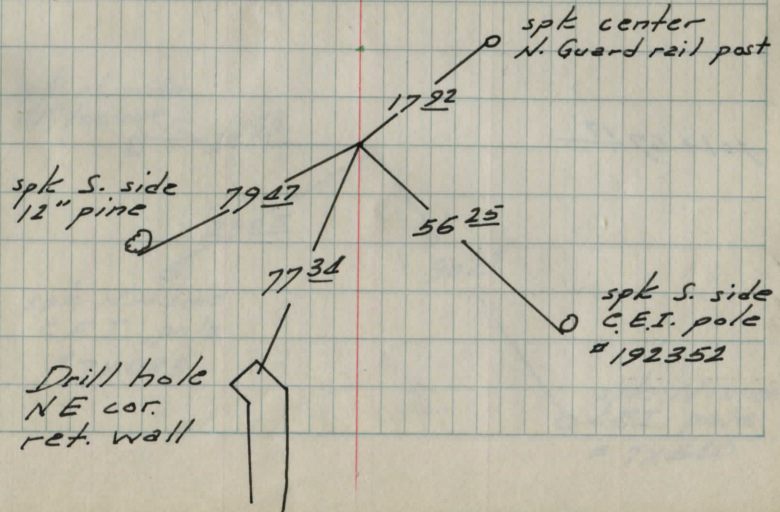 spk center
N. Guard rail post
17 92
spk S. side
12" pine
79 47
56 25
77 34
spk S. side
C.E.I. pole
#192352
Drill hole
NE cor.
ret. wall